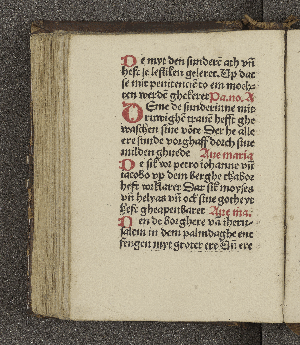 De myt den sundere ath vñ
heft se lefliken geleret. Vp dat
se mit penitencie to em mochten
werdē ghekeret Pa. no. A
Deme de sunderinne mit
ruwighē tranē hefft ghe
waschen sine vöte Der he alle
ere sunde vorghaff dorch sine
milden ghuede Aue maria
De sik vor petro iohanne vñ
iacobo vp dem berghe thabor
heft vorklaret Dar sik moyses
vñ helyas vñ ock sine gotheyt
heft gheapenbaret Aue ma.
Den de borghere vā iheru-
salem in dem palmdaghe ent
fengen myt groter ere Vñ ere